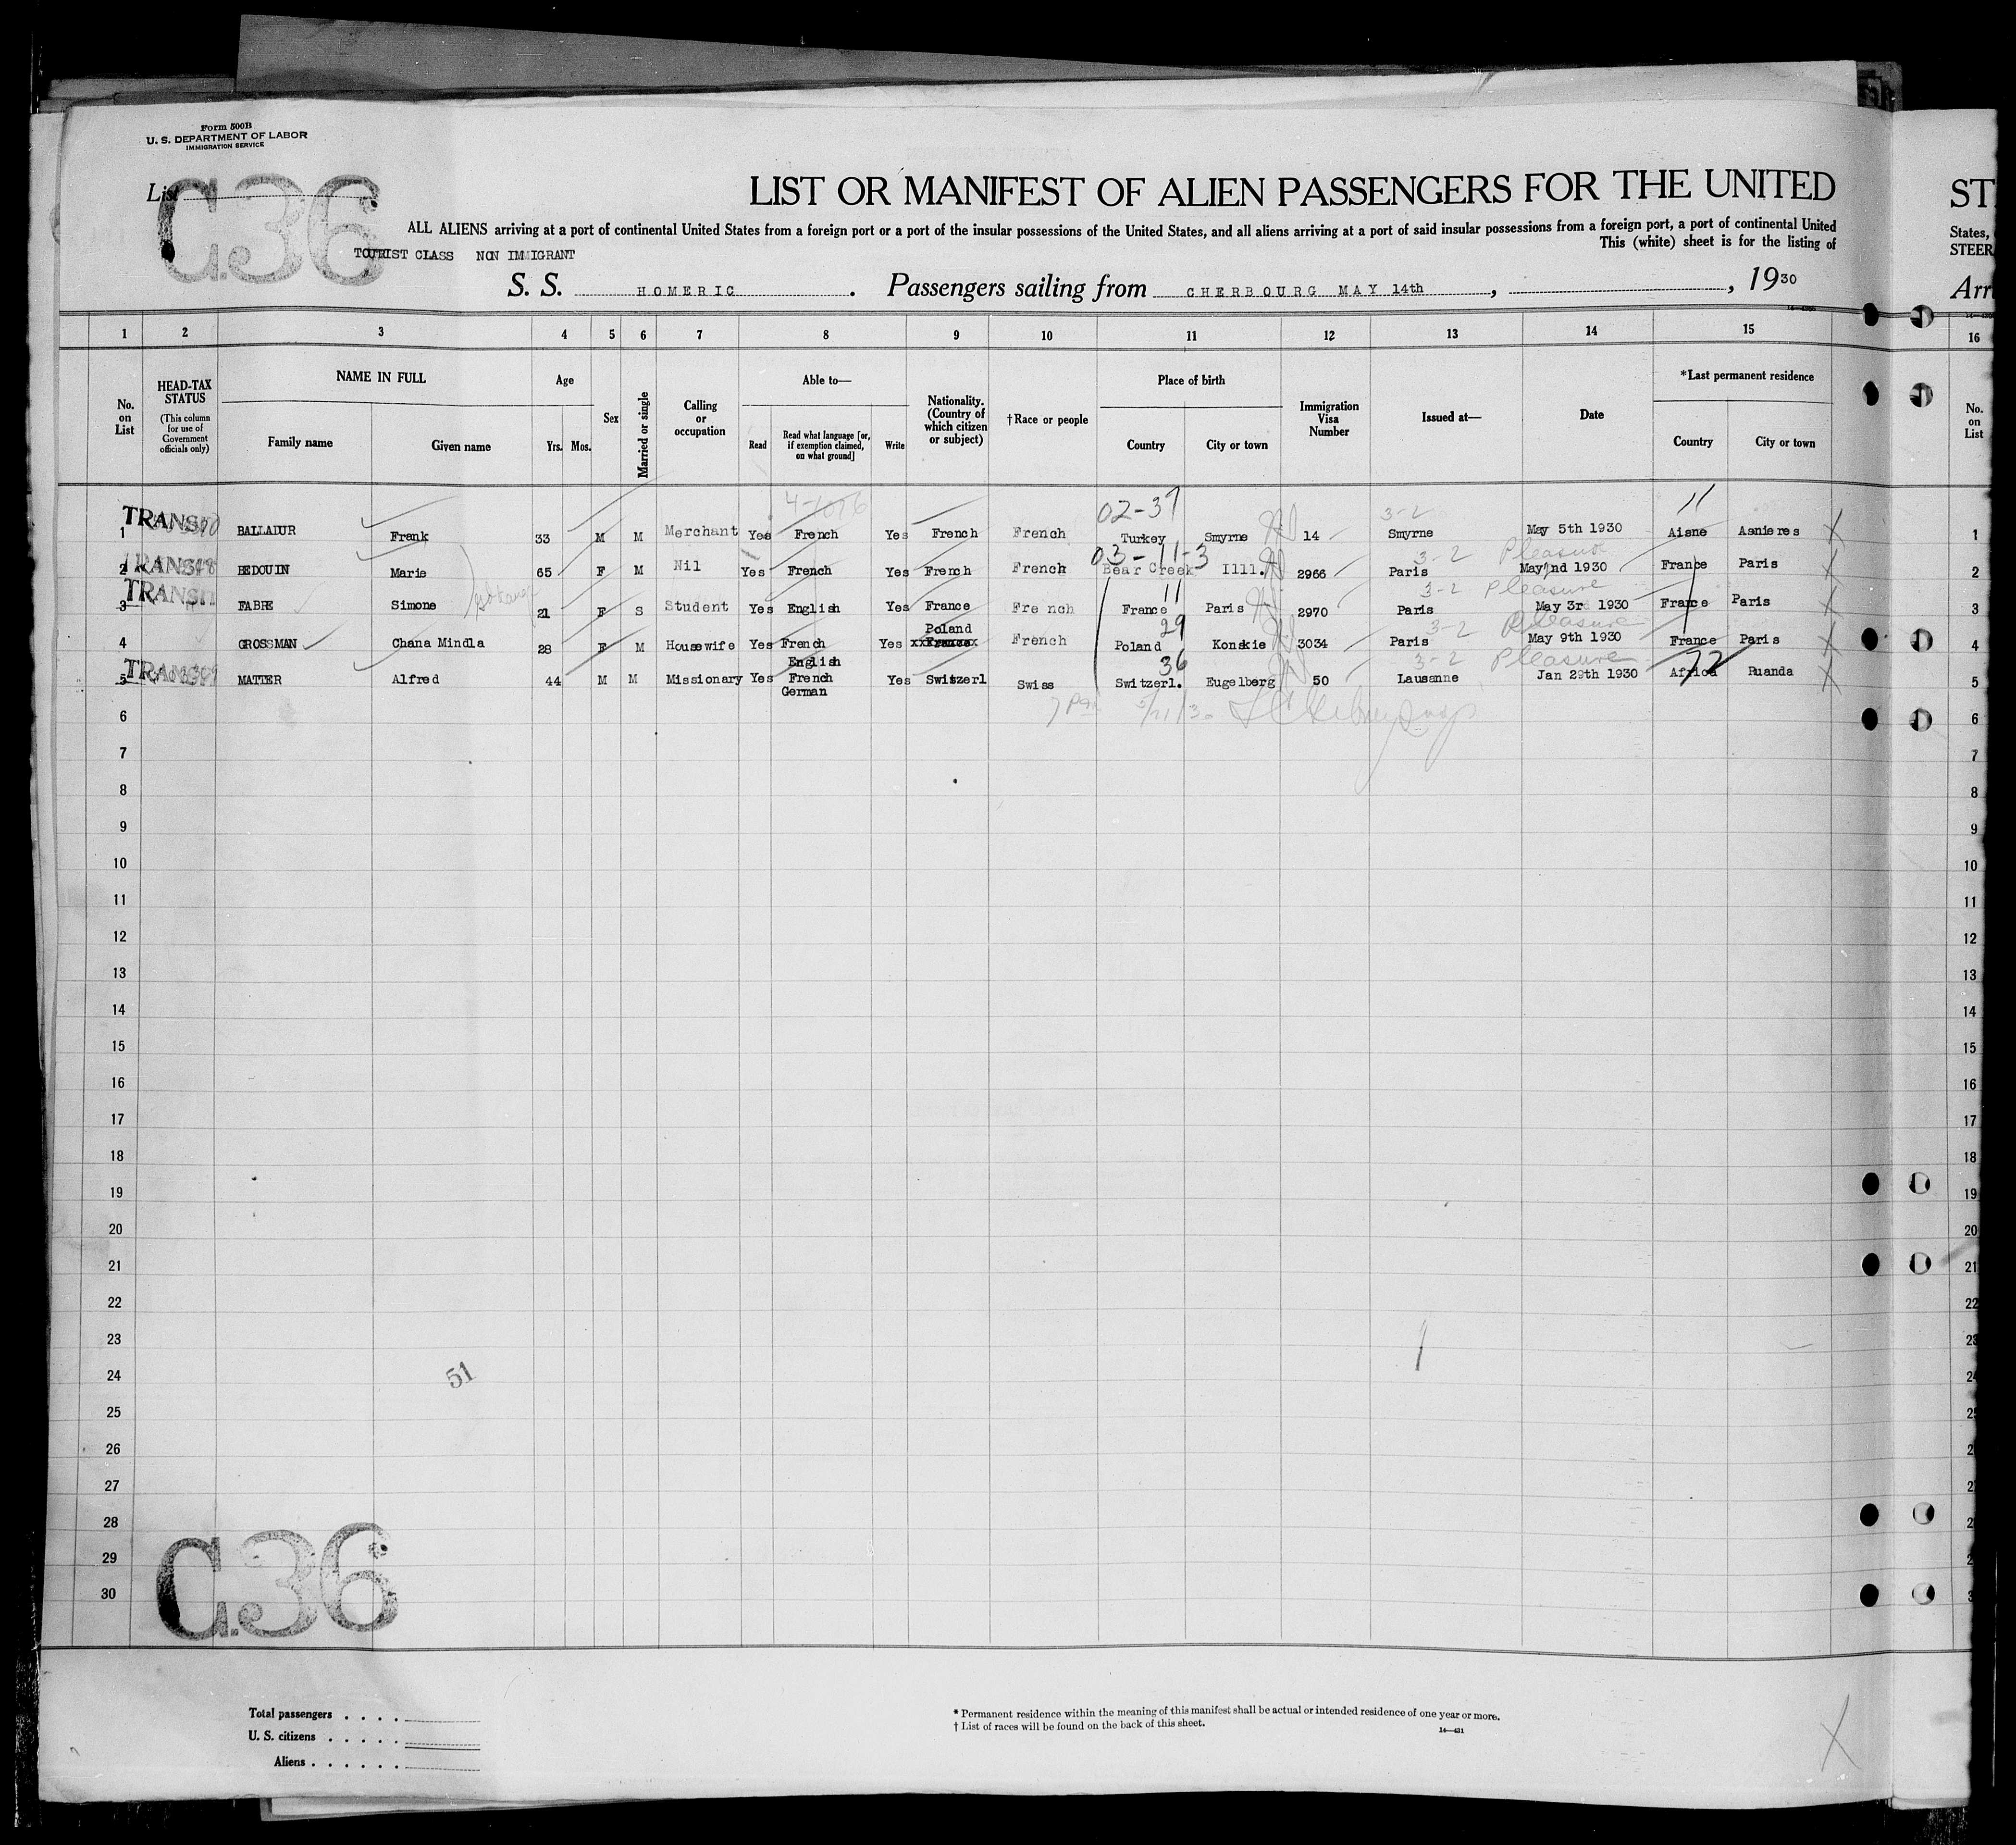 Form 500B
U. S. DEPARTMENT OF LABOR
IMMIGRATION SERVICE
List G.36
LIST OR MANIFEST OF ALIEN PASSENGERS FOR THE UNITED ST
ALL ALIENS arriving at a port of continental United States from a foreign port or a port of the insular possessions of the United States, and all aliens arriving at a port of said insular possessions from a foreign port, a port of continental United States,
This (white) sheet is for the listing of STEER
TOURIST CLASS NON IMMIGRANT
S. S. HOMERIC . Passengers sailing from CHERBOURG MAY 14th , , 1930 Arri
1 2 3 4 5 6 7 8 9 10 11 12 13 14 15 16
No. on List
HEAD-TAX STATUS (This column for use of Government officials only)
NAME IN FULL
Family name Given name
Age
Yrs. Mos.
Sex
Married or single
Calling or occupation
Able to—
Read Read what language [or, if exemption claimed, on what ground] Write
Nationality. (Country of which citizen or subject)
†Race or people
Place of birth
Country City or town
Immigration Visa Number
Issued at—
Date
*Last permanent residence
Country City or town
No. on List
02-37 3-2 11
TRANSIT
1 BALLADUR Frank 33 M M Merchant Yes French Yes French French Turkey Smyrne 14 Smyrne May 5th 1930 Aisne Asnieres 1
03-11-3 3-2 Pleasure
TRANSIT
2 BEDOUIN Marie 65 F M Nil Yes French Yes French French Bear Creek Illl. 2966 Paris May 2nd 1930 France Paris 2
11 3-2 Pleasure
TRANSIT
3 FABRE Simone 21 F S Student Yes English Yes France French France Paris 2970 Paris May 3rd 1930 France Paris 3
Poland 29 3-2 Pleasure
4 GROSSMAN Chana Mindla 28 F M Housewife Yes French Yes xxFrancexx French Poland Konskie 3034 Paris May 9th 1930 France Paris 4
English 36 3-2 Pleasure 72
TRANSIT
5 MATTER Alfred 44 M M Missionary Yes French Yes Switzerl Swiss Switzerl. Eugelberg 50 Lausanne Jan 29th 1930 Africa Ruanda 5
German
5/21/30
6 6
7 7
8 8
9 9
10 10
11 11
12 12
13 13
14 14
15 15
16 16
17 17
18 18
19 19
20 20
21 21
22 22
23 23
24 51 24
25 25
26 2
27 2
28 2
29 2
30 3
G.36
Total passengers . . . .
U. S. citizens . . . . .
Aliens . . . . . .
* Permanent residence within the meaning of this manifest shall be actual or intended residence of one year or more.
† List of races will be found on the back of this sheet.
14—431